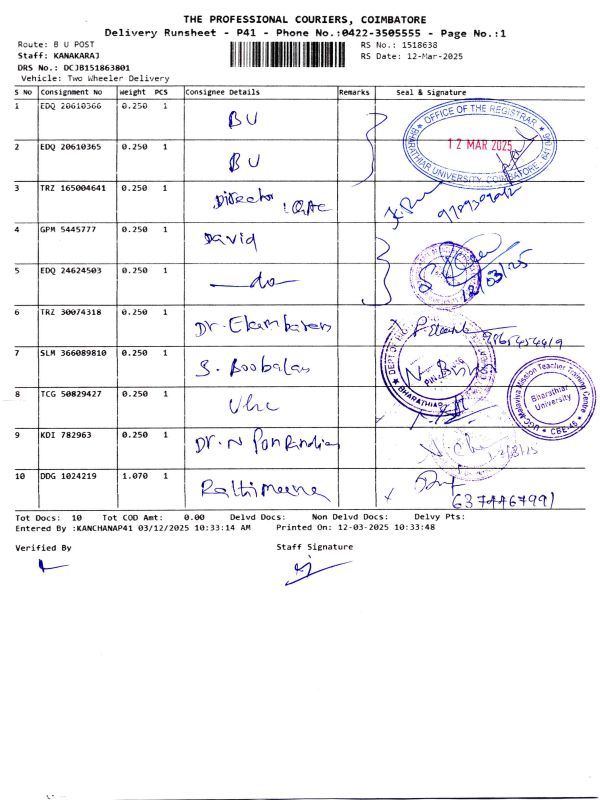 THE PROFESSIONAL COURIERS, COIMBATORE
Delivery Runsheet - P41 - Phone No.:0422-3505555 - Page No.:1
Route: B U POST
Staff: KANAKARAJ
DRS No.: DCJB151863801
Vehicle: Two Wheeler Delivery
RS No.: 1518638
RS Date: 12-Mar-2025
S No Consignment No Weight PCS Consignee Details Remarks Seal & Signature
1 EDQ 20610366 0.250 1 BU
OFFICE OF THE REGISTRAR
12 MAR 2025
BHARATHIAR UNIVERSITY, COIMBATORE - 641 046
2 EDQ 20610365 0.250 1 BU
3 TRZ 165004641 0.250 1 Director IQAC
4 GPM 5445777 0.250 1 David
5 EDQ 24624503 0.250 1 — do —
12/03/25
6 TRZ 30074318 0.250 1 Dr. Ekambaram
7 SLM 366089810 0.250 1 S. Boobalan
DEPT OF
BHARATHIAR
8 TCG 50829427 0.250 1
UGC-Malaviya Mission Teacher Training Centre
Bharathiar
University
CBE-46
9 KDI 782963 0.250 1 Dr. N Ponpandian
10 DDG 1024219 1.070 1 Rathimeena
6379467991
Tot Docs: 10 Tot COD Amt: 0.00 Delvd Docs: Non Delvd Docs: Delvy Pts:
Entered By :KANCHANAP41 03/12/2025 10:33:14 AM Printed On: 12-03-2025 10:33:48
Verified By Staff Signature